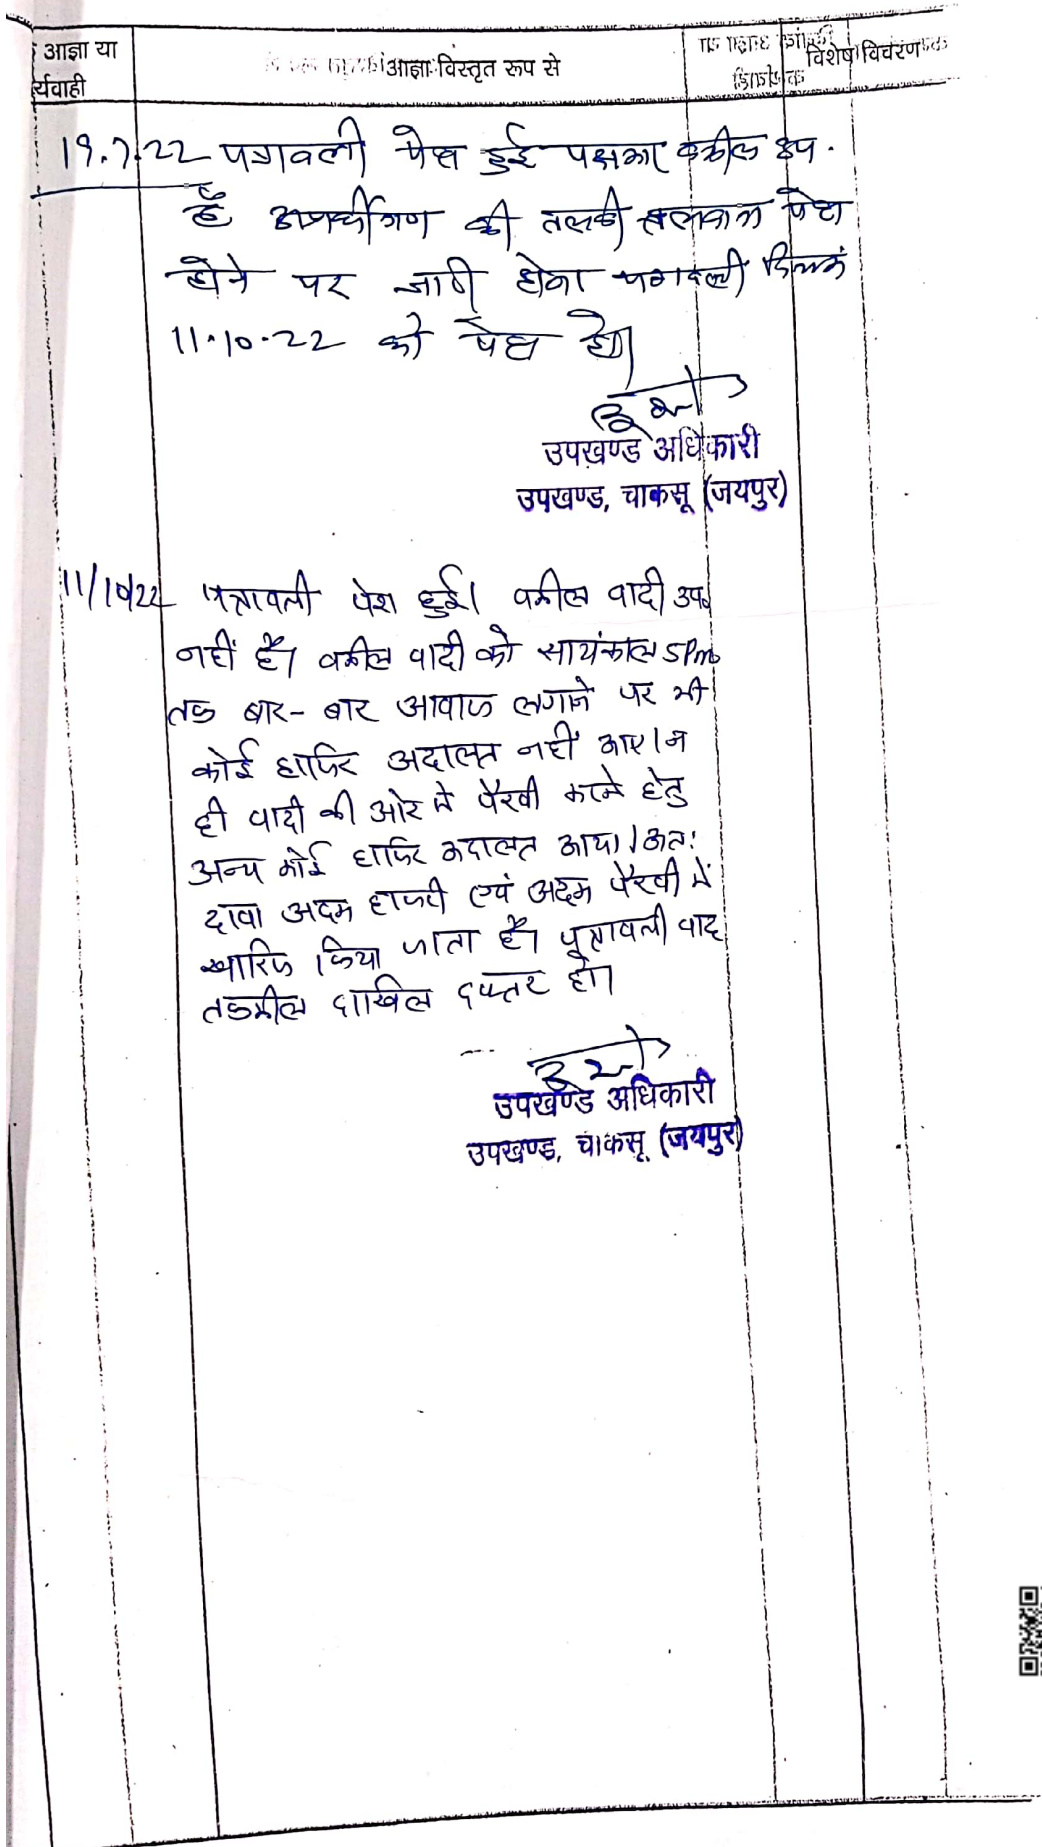 आज्ञा या
र्यवाही
आज्ञा विस्तृत रूप से
विशेष विवरण
19.7.22 पत्रावली पेश हुई पक्षकार वकील उप.
है अप्रार्थीगण की तलबी तलवाना पेश
होने पर जारी होवे पत्रावली दिनांक
11.10.22 को पेश हो।
उपखण्ड अधिकारी
उपखण्ड, चाकसू (जयपुर)
11/10/22 पत्रावली पेश हुई। वकील वादी उप.
नहीं है। वकील वादी को सायंकाल 5 Pm
तक बार-बार आवाज लगाने पर भी
कोई हाजिर अदालत नहीं आए। न
ही वादी की ओर से पैरवी करने हेतु
अन्य कोई हाजिर अदालत आया। अतः
दावा अदम हाजरी एवं अदम पैरवी में
खारिज किया जाता है। पत्रावली बाद
तकमील दाखिल दफ्तर हो।
उपखण्ड अधिकारी
उपखण्ड, चाकसू (जयपुर)